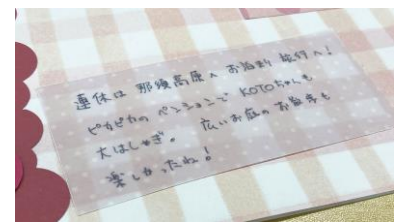 連休は 那須高原へ お泊り 旅行へ!
ピカピカの ペンションで KOTOちゃんも
大はしゃぎ。 広いお庭の お散歩も
楽しかったね!